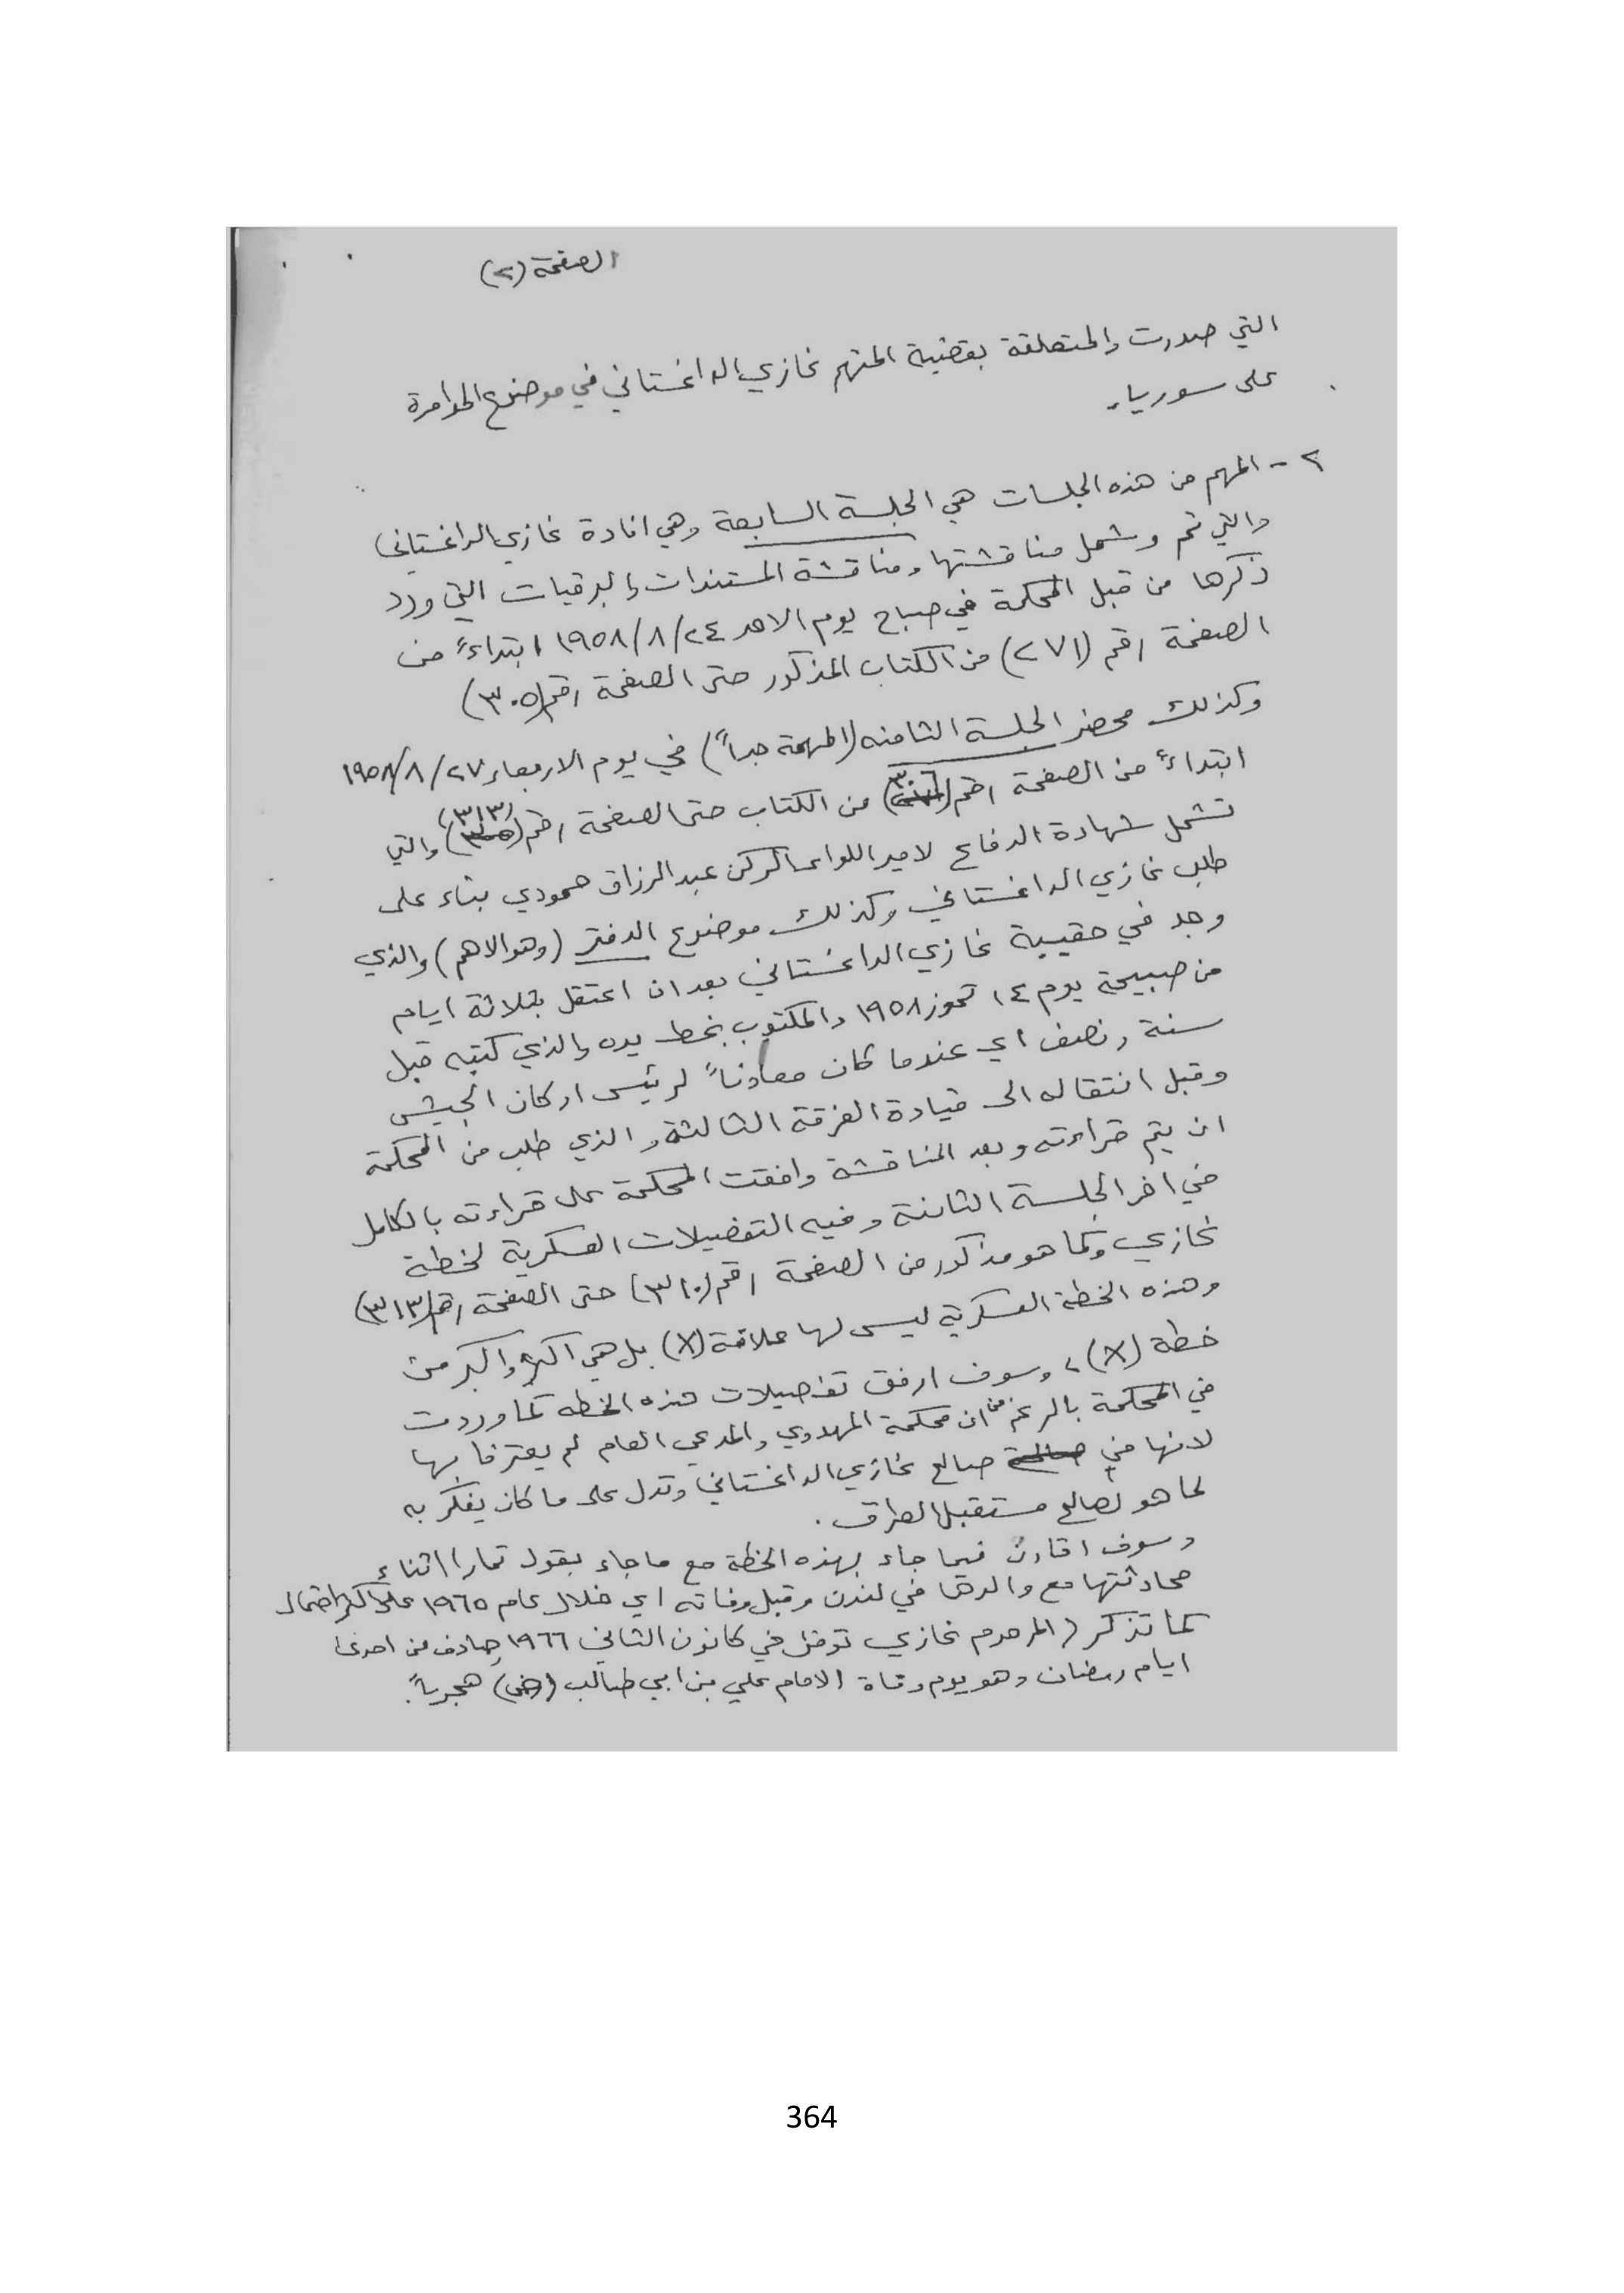 الصفحة (٢)
التي صدرت والمتعلقة بقضية المتهم غازي الداغستاني في موضوع المؤامرة
على سوريا.
٢ - المهم من هذه الجلسات هي الجلسة السابعة وهي افادة غازي الداغستاني
والتي تم وشمل مناقشتها ومناقشة المستندات والبرقيات التي ورد
ذكرها من قبل المحكمة في صباح يوم الاحد ٢٤/٨/١٩٥٨ ابتداءً من
الصفحة رقم (٢٧١) من الكتاب المذكور حتى الصفحة رقم (٣٠٥)
وكذلك محضر الجلسة الثامنه (المهمة جداً) في يوم الاربعاء ٢٧/٨/١٩٥٨
ابتداءً من الصفحة رقم (٣٠٦) من الكتاب حتى الصفحة رقم (٣١٣) والتي
تشمل شهادة الدفاع لامير اللواء الركن عبد الرزاق حمودي بناء على
طلب غازي الداغستاني وكذلك موضوع الدفتر (وهو الاهم) والذي
وجد في حقيبة غازي الداغستاني بعد ان اعتقل بثلاثة ايام
من صبيحة يوم ١٤ تموز ١٩٥٨ والمكتوب بخط يده والذي كتبه قبل
سنة ونصف اي عندما كان معاوناً لرئيس اركان الجيش
وقبل انتقاله الى قيادة الفرقة الثالثة والذي طلب من المحكمة
ان يتم قراءته وبعد المناقشة وافقت المحكمة على قراءته بالكامل
في اخر الجلسة الثامنة وفيه التفضيلات العسكرية لخطة
غازي وكما هو مذكور من الصفحة رقم (٣١٠) حتى الصفحة رقم (٣١٣)
وهذه الخطة العسكرية ليس لها علاقة (X) بل هي اكثر واكبر من
خطة (X)، وسوف ارفق تفاصيلات هذه الخطه كما وردت
في المحكمة بالرغم من ان محكمة المهداوي والمدعي العام لم يعترفا بها
لانها في صالح غازي الداغستاني وتدل على ما كان يفكر به
لما هو لصالح مستقبل العراق.
وسوف اقارن فيما جاء بهذه الخطة مع ما جاء بقول تمارا اثناء
محادثتها مع والدها في لندن وقبل وفاته اي خلال عام ١٩٦٥ على اكثر احتمال
كما تذكر (المرحوم غازي توفى في كانون الثاني ١٩٦٦ صادف من احدى
ايام رمضان وهو يوم وفاة الامام علي بن ابي طالب (رض) هجرياً.
364